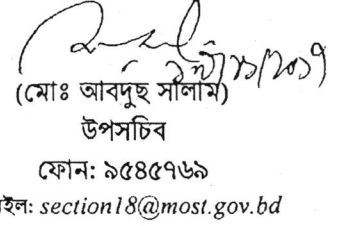 (মোঃ আবদুছ সালাম)
উপসচিব
ফোন: ৯৫৪৫৭৬৯
ইল: section18@most.gov.bd